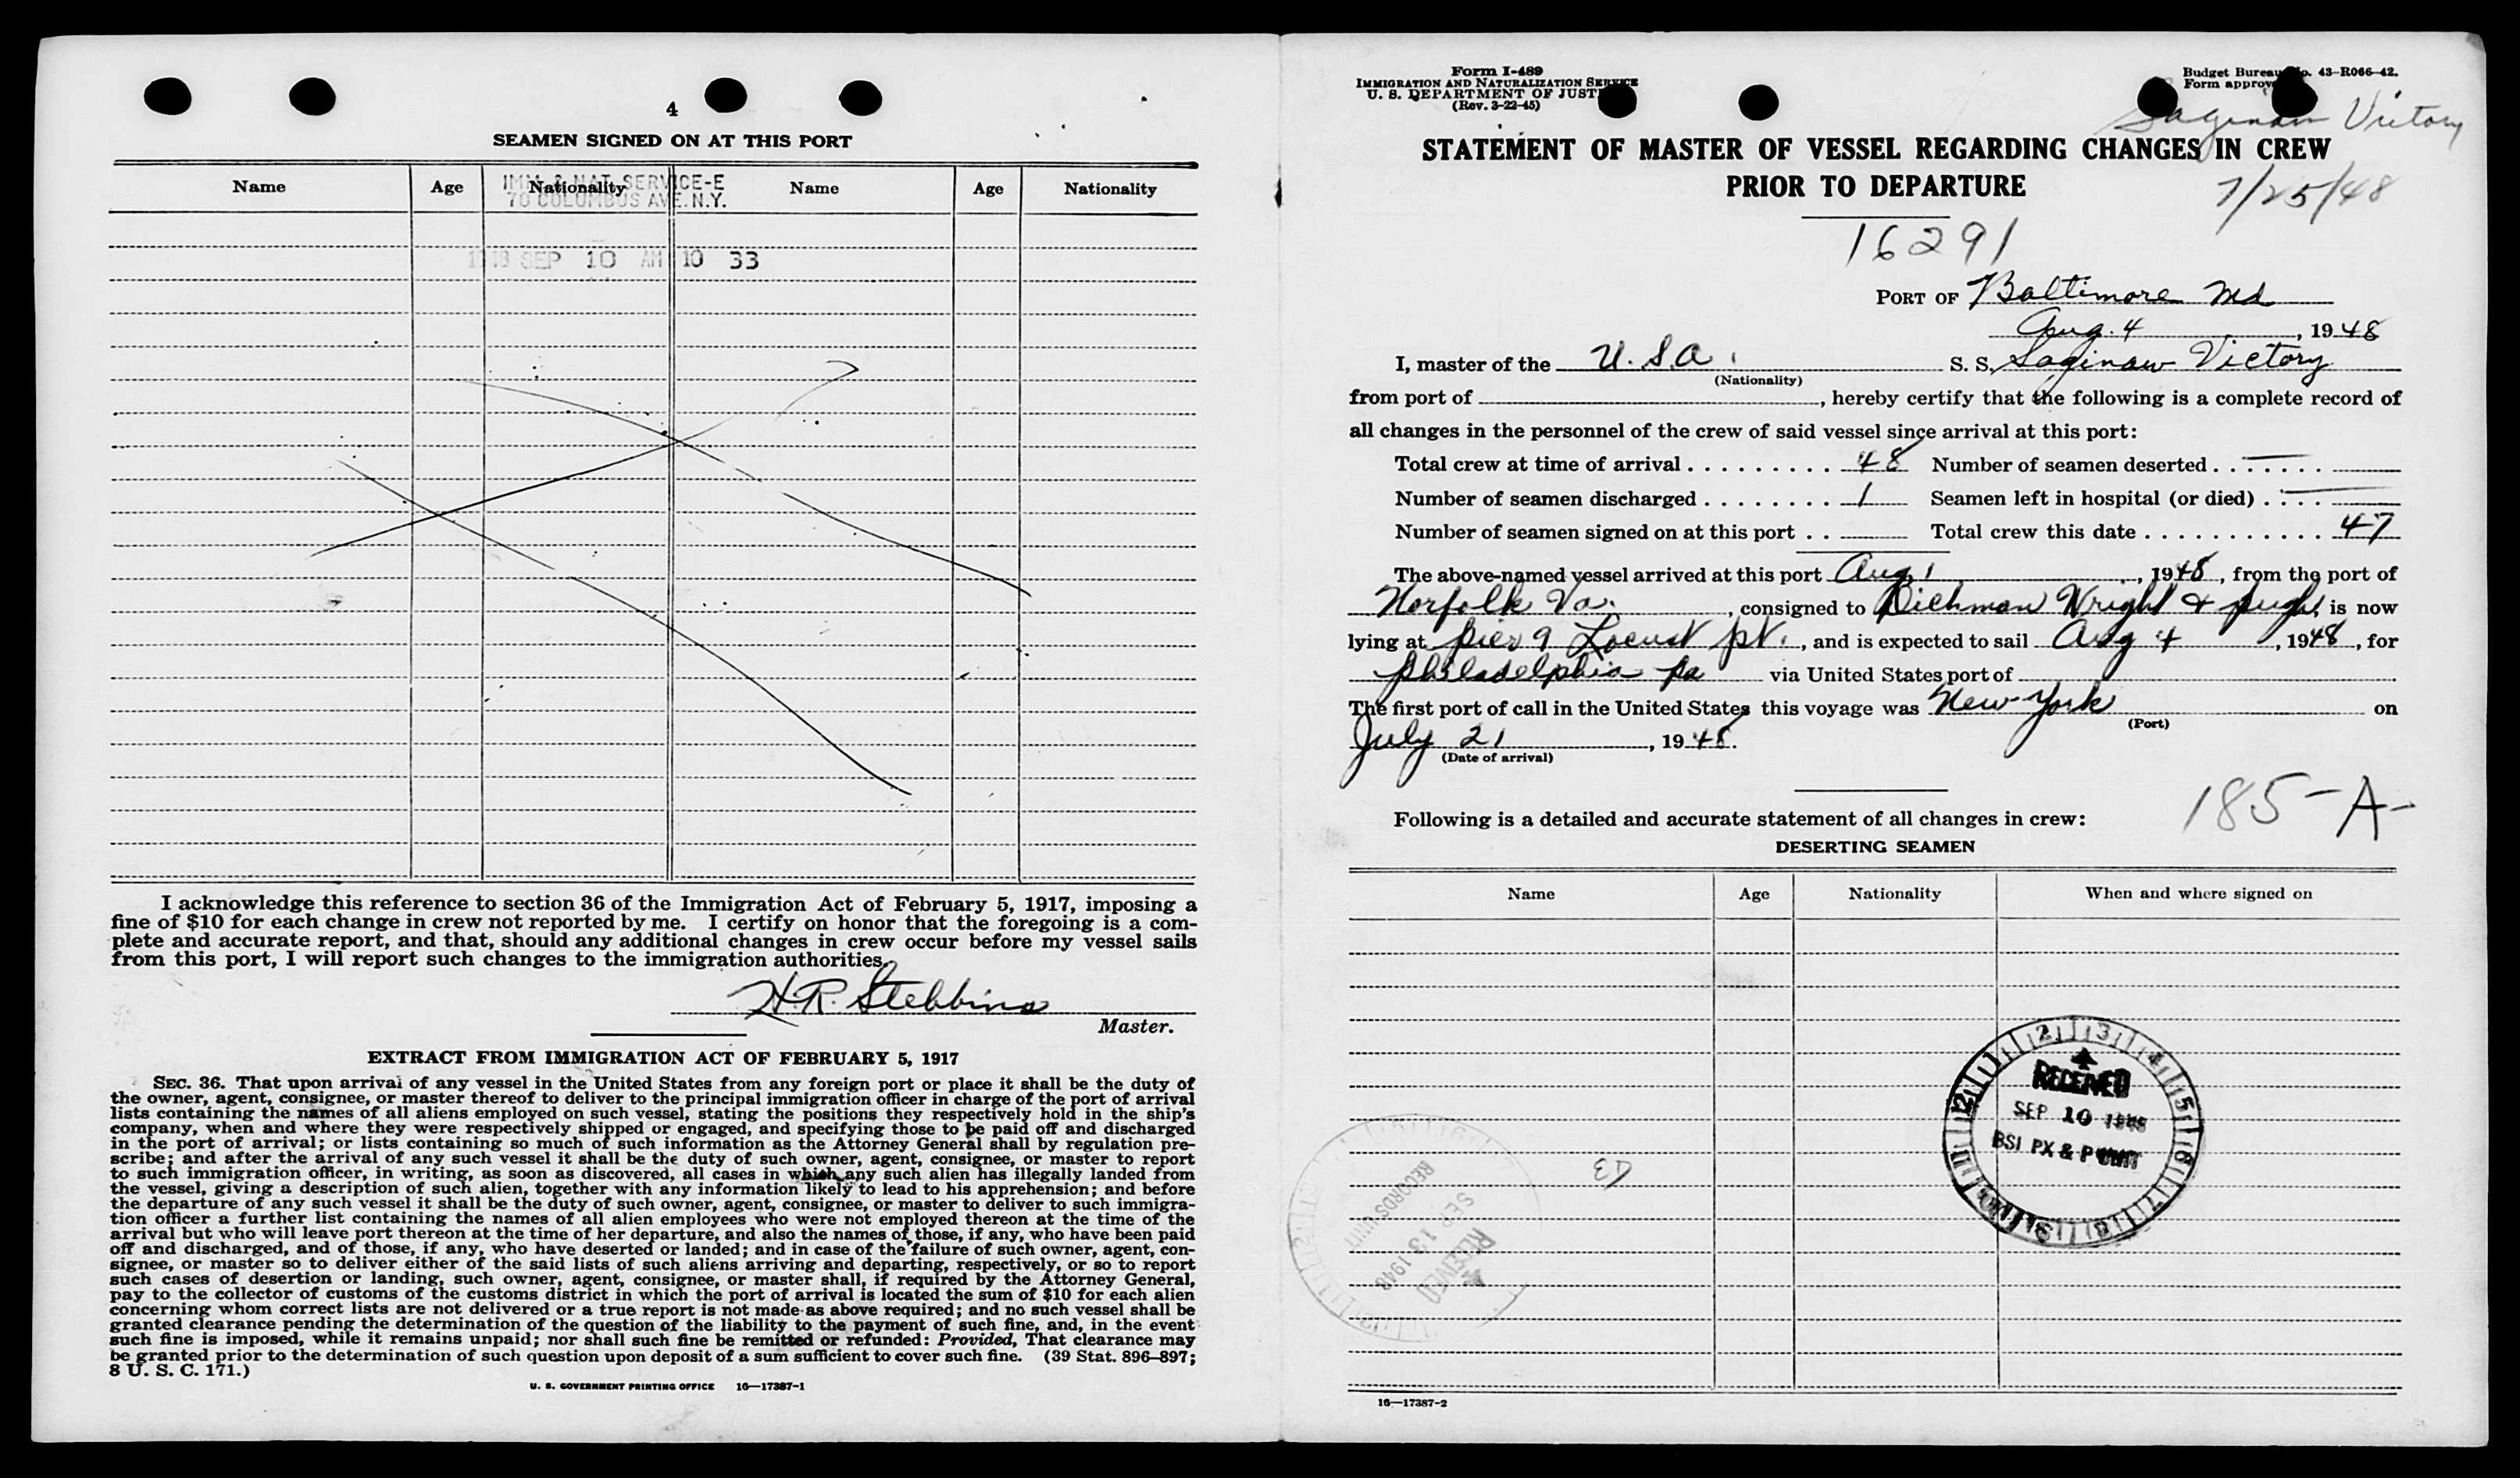 4
SEAMEN SIGNED ON AT THIS PORT
Name Age Nationality Name Age Nationality
IMM & NAT SERVICE-E
70 COLUMBUS AVE. N.Y.
1948 SEP 10 AM 10 33
I acknowledge this reference to section 36 of the Immigration Act of February 5, 1917, imposing a
fine of $10 for each change in crew not reported by me. I certify on honor that the foregoing is a com-
plete and accurate report, and that, should any additional changes in crew occur before my vessel sails
from this port, I will report such changes to the immigration authorities.
H.R. Stebbins
Master.
EXTRACT FROM IMMIGRATION ACT OF FEBRUARY 5, 1917
SEC. 36. That upon arrival of any vessel in the United States from any foreign port or place it shall be the duty of
the owner, agent, consignee, or master thereof to deliver to the principal immigration officer in charge of the port of arrival
lists containing the names of all aliens employed on such vessel, stating the positions they respectively hold in the ship's
company, when and where they were respectively shipped or engaged, and specifying those to be paid off and discharged
in the port of arrival; or lists containing so much of such information as the Attorney General shall by regulation pre-
scribe; and after the arrival of any such vessel it shall be the duty of such owner, agent, consignee, or master to report
to such immigration officer, in writing, as soon as discovered, all cases in which any such alien has illegally landed from
the vessel, giving a description of such alien, together with any information likely to lead to his apprehension; and before
the departure of any such vessel it shall be the duty of such owner, agent, consignee, or master to deliver to such immigra-
tion officer a further list containing the names of all alien employees who were not employed thereon at the time of the
arrival but who will leave port thereon at the time of her departure, and also the names of those, if any, who have been paid
off and discharged, and of those, if any, who have deserted or landed; and in case of the failure of such owner, agent, con-
signee, or master so to deliver either of the said lists of such aliens arriving and departing, respectively, or so to report
such cases of desertion or landing, such owner, agent, consignee, or master shall, if required by the Attorney General,
pay to the collector of customs of the customs district in which the port of arrival is located the sum of $10 for each alien
concerning whom correct lists are not delivered or a true report is not made as above required; and no such vessel shall be
granted clearance pending the determination of the question of the liability to the payment of such fine, and, in the event
such fine is imposed, while it remains unpaid; nor shall such fine be remitted or refunded: Provided, That clearance may
be granted prior to the determination of such question upon deposit of a sum sufficient to cover such fine. (39 Stat. 896–897;
8 U. S. C. 171.)
U. S. GOVERNMENT PRINTING OFFICE 16—17387-1
Form I-489
IMMIGRATION AND NATURALIZATION SERVICE
U. S. DEPARTMENT OF JUST
(Rev. 3-22-45)
Budget Bureau No. 43-R066-42.
Form approv
Saginaw Victory
STATEMENT OF MASTER OF VESSEL REGARDING CHANGES IN CREW
PRIOR TO DEPARTURE
7/25/48
16291
PORT OF Baltimore Md
Aug. 4, 1948
I, master of the U.S.A. S. S. Saginaw Victory
(Nationality)
from port of , hereby certify that the following is a complete record of
all changes in the personnel of the crew of said vessel since arrival at this port:
Total crew at time of arrival 48 Number of seamen deserted —
Number of seamen discharged 1 Seamen left in hospital (or died) —
Number of seamen signed on at this port Total crew this date 47
The above-named vessel arrived at this port Aug 1, 1948, from the port of
Norfolk Va. , consigned to Dichman Wright & Pugh, is now
lying at pier 9 Locust pt. , and is expected to sail Aug 4, 1948, for
philadelphia pa via United States port of
The first port of call in the United States this voyage was New York on
(Port)
July 21, 1948.
(Date of arrival)
185-A-
Following is a detailed and accurate statement of all changes in crew:
DESERTING SEAMEN
Name Age Nationality When and where signed on
RECEIVED
SEP 10 1948
BSI PX & P UNIT
RECEIVED
SEP 13 1948
RECORDS UNIT
16—17387-2